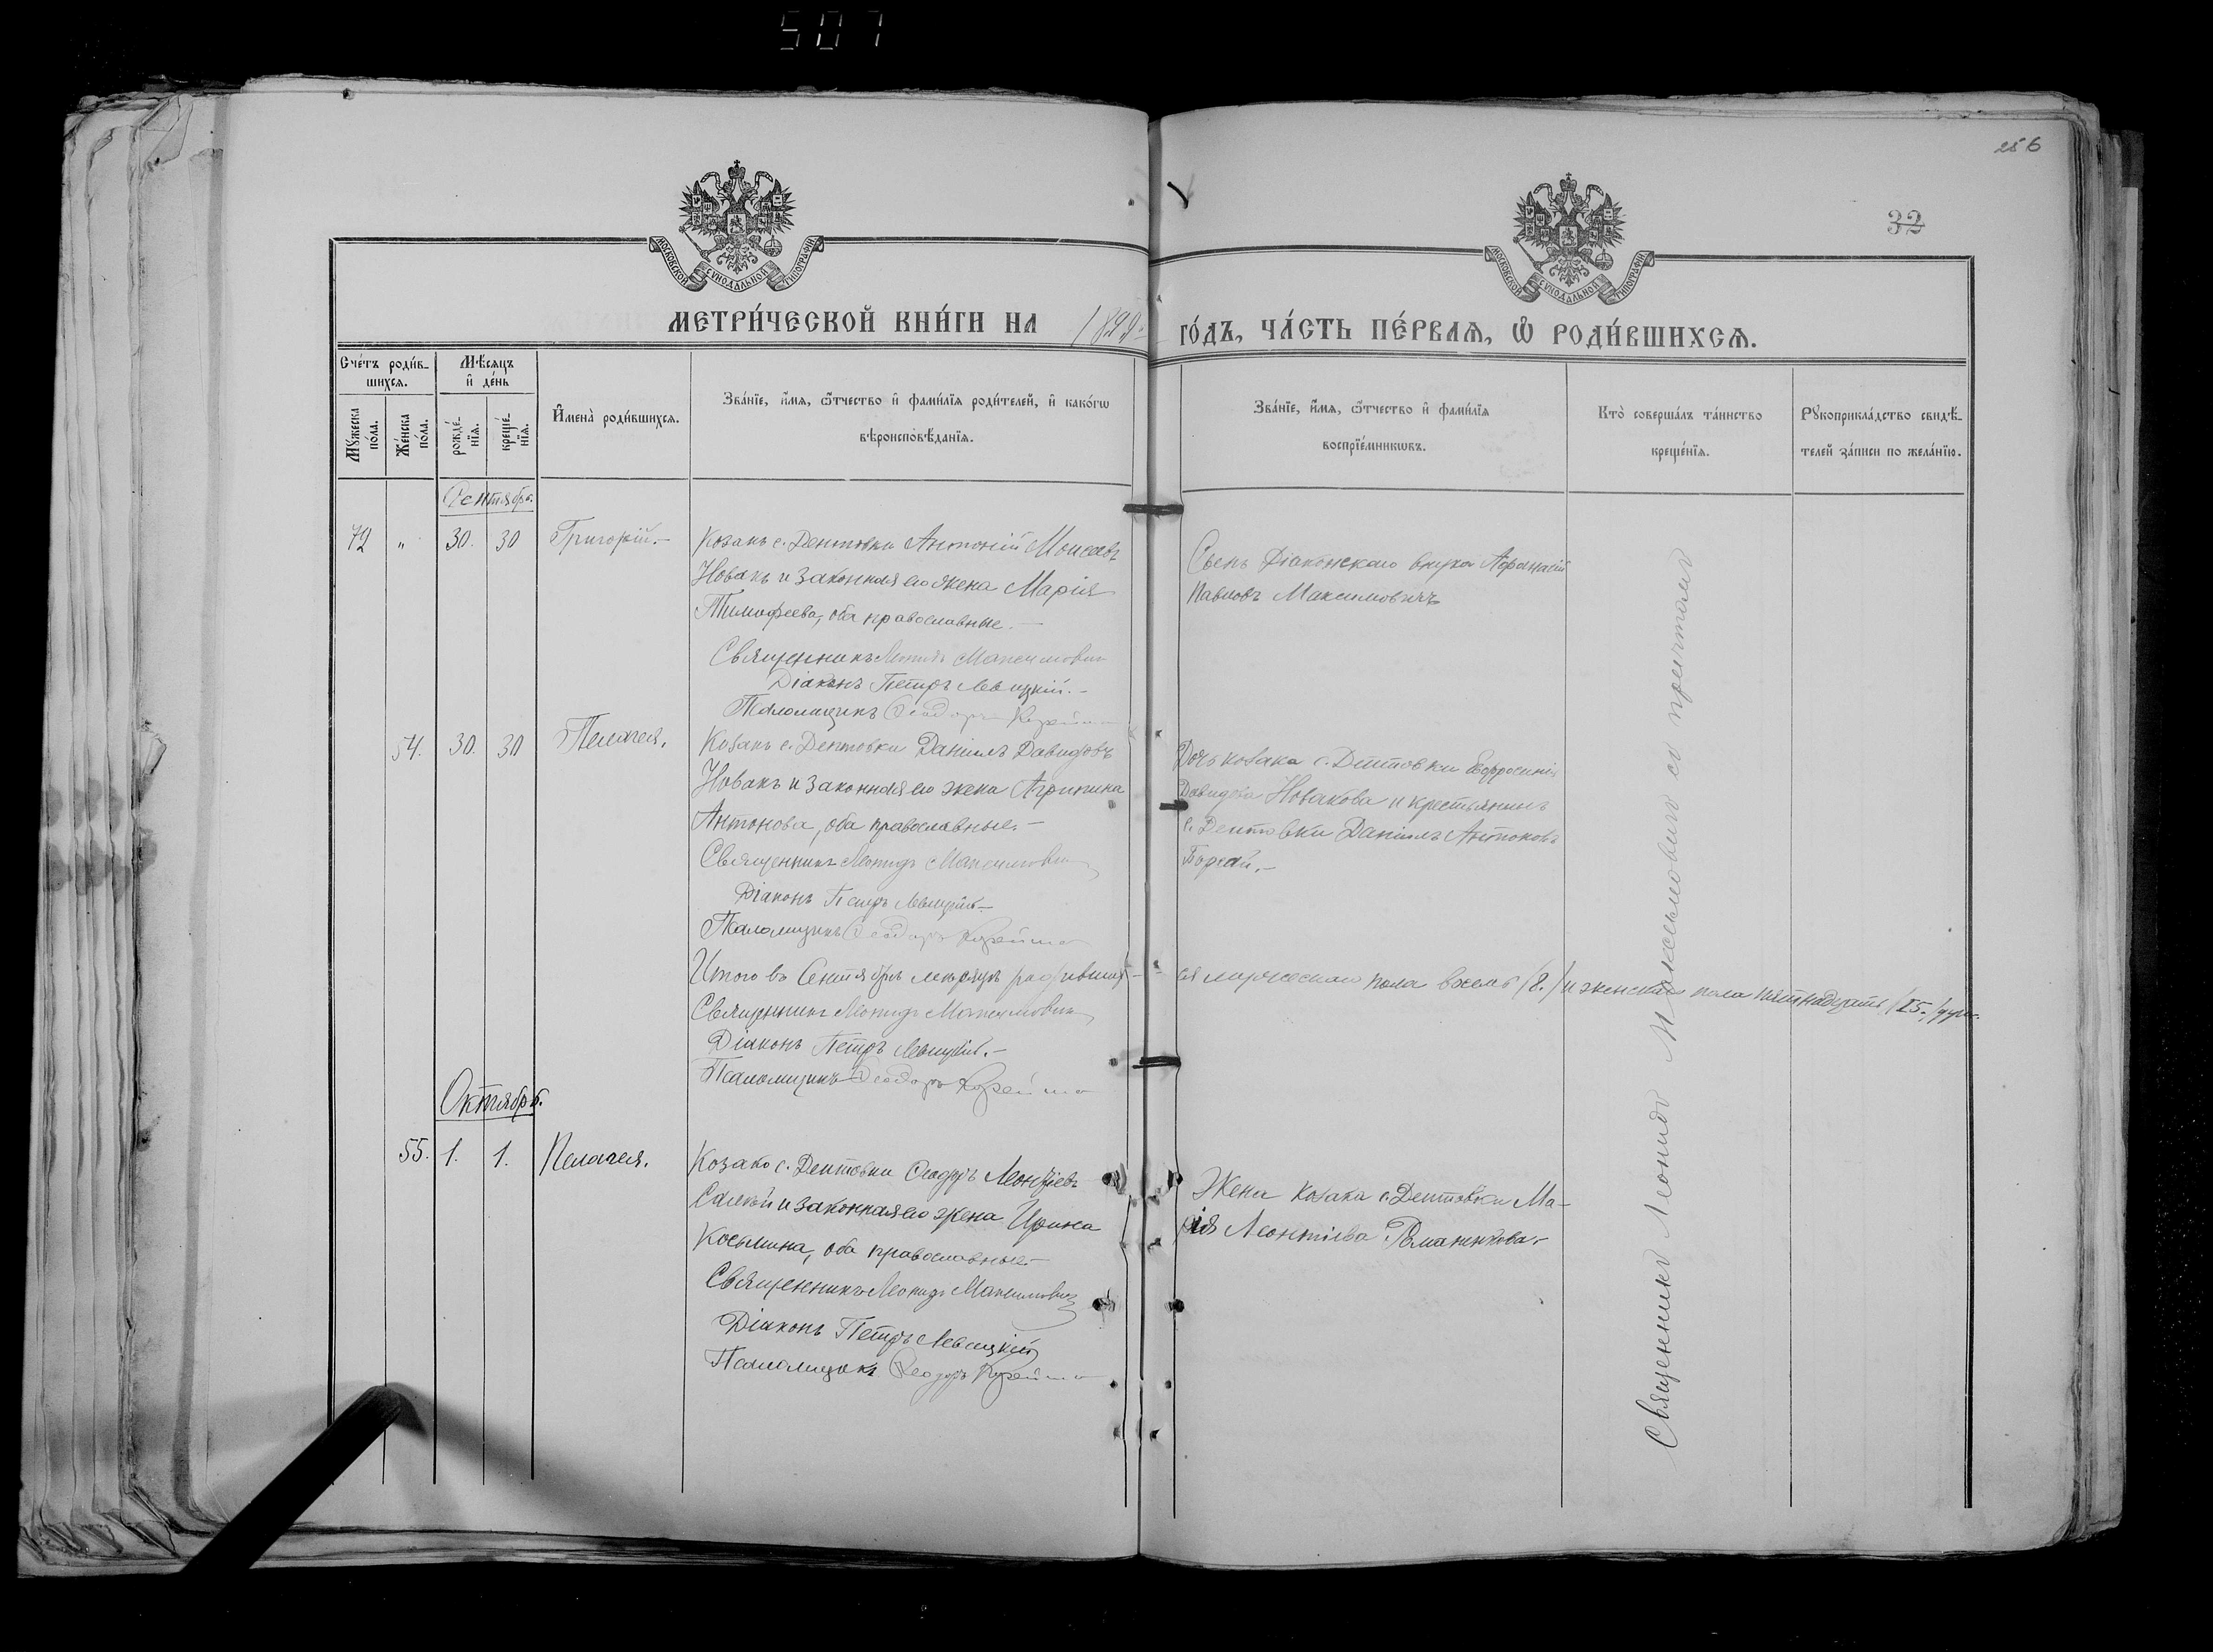 507
256
32
МОСКОВСКОЙ СѴНОДАЛЬНОЙ ТИПОГРАФІИ
МОСКОВСКОЙ СѴНОДАЛЬНОЙ ТИПОГРАФІИ
МЕТРИ́ЧЕСКОЙ КНИ́ГИ НА ГО́ДЪ, ЧА́СТЬ ПЕ́РВАЯ, Ѿ РОДИ́ВШИХСЯ.
Сче́тъ роди́в-
шихся.
Мѣ́сяцъ
и҆ де́нь
Мꙋ́жеска
по́ла.
Же́нска
по́ла.
рожде́-
нїя.
креще́-
нїя.
И҆мена̀ роди́вшихся.
Зва́нїе, и҆́мя, ѻ҆́тчество и҆ фами́лїя роди́телей, и҆ како́гѡ
вѣроисповѣ́данїя.
Зва́нїе, и҆́мя, ѻ҆́тчество и҆ фами́лїя
воспрїе́мникѡвъ.
Кто̀ соверша́лъ та́инство
креще́нїя.
Рꙋкоприкла́дство свидѣ́-
телей за́писи по жела́нїю.
Сентябрь.
72 „ 30. 30 Григорій.—
Козакъ с. Дептовки Антоній Моисеевъ
Новакъ и законная его жена Марія
Тимофеева, оба православные.—
Священникъ Леонидъ Максимович
Діаконъ Петръ Левицкій.—
Псаломщикъ Ѳеодоръ
Сынъ Діаконскаго внука Афанасій
Павловъ Максимовичъ
54. 30. 30 Пелагея.
Козакъ с. Дептовки Даніилъ Давидовъ
Новакъ и законная его жена Агрипина
Антонова, оба православные.—
Священникъ Леонидъ Максимович
Діаконъ Петръ Левицкій.—
Псаломщикъ Ѳеодоръ
Дочь козака с. Дептовки Евфросинія
Давидова Новакова и крестьянинъ
с. Дептовки Даніилъ Антоновъ
Итого въ Сентябрѣ мѣсяцѣ родивших-ся мужескаго пола восемь /8./ и женскаго пола пятнадцать /15./ душъ.
Священникъ Леонидъ Максимович
Діаконъ Петръ Левицкій.—
Псаломщикъ Ѳеодоръ
Октябрь.
55. 1. 1. Пелагея.
Козакъ с. Дептовки Ѳеодоръ Леонтіевъ
и законная его жена Ирина
Косьмина, оба православные.—
Священникъ Леонидъ Максимович
Діаконъ Петръ Левицкій
Псаломщикъ Ѳеодоръ
Жена козака с. Дептовки Ма-
рія Леонтіева Романенкова.—
Священникъ Леонидъ Максимович со причтомъ